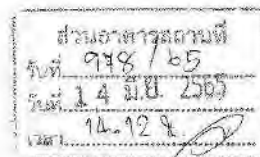 ส่วนอาคารสถานที่
รับที่ 978 / 65
วันที่ 14 มิ.ย. 2565
เวลา 14.12 น.